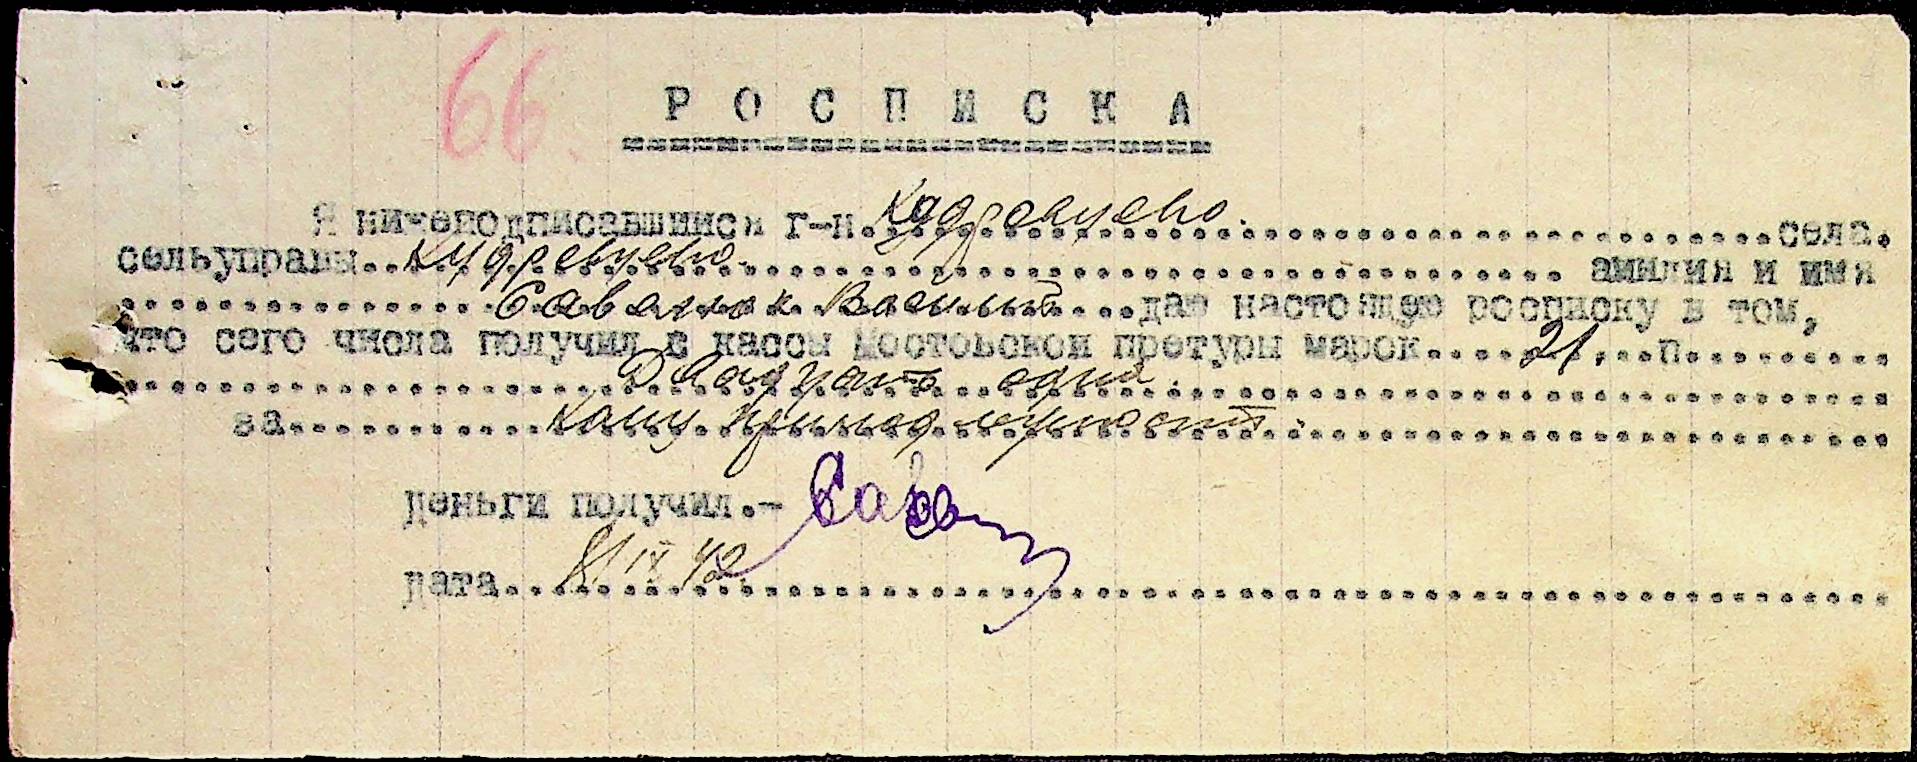 66.
РОСПИСКА
Я нижеподписавшийся г-н. Кудрявцево. села.
сельуправы. Кудрявцево. амилия и имя
Савалюк Василий даю настоящую росписку в том,
что сего числа получил с кассы Мостовской претуры марок. 21. п.
Двадцать один.
за. канц. принадлежности.
деньги получил.-
дата. IX 42